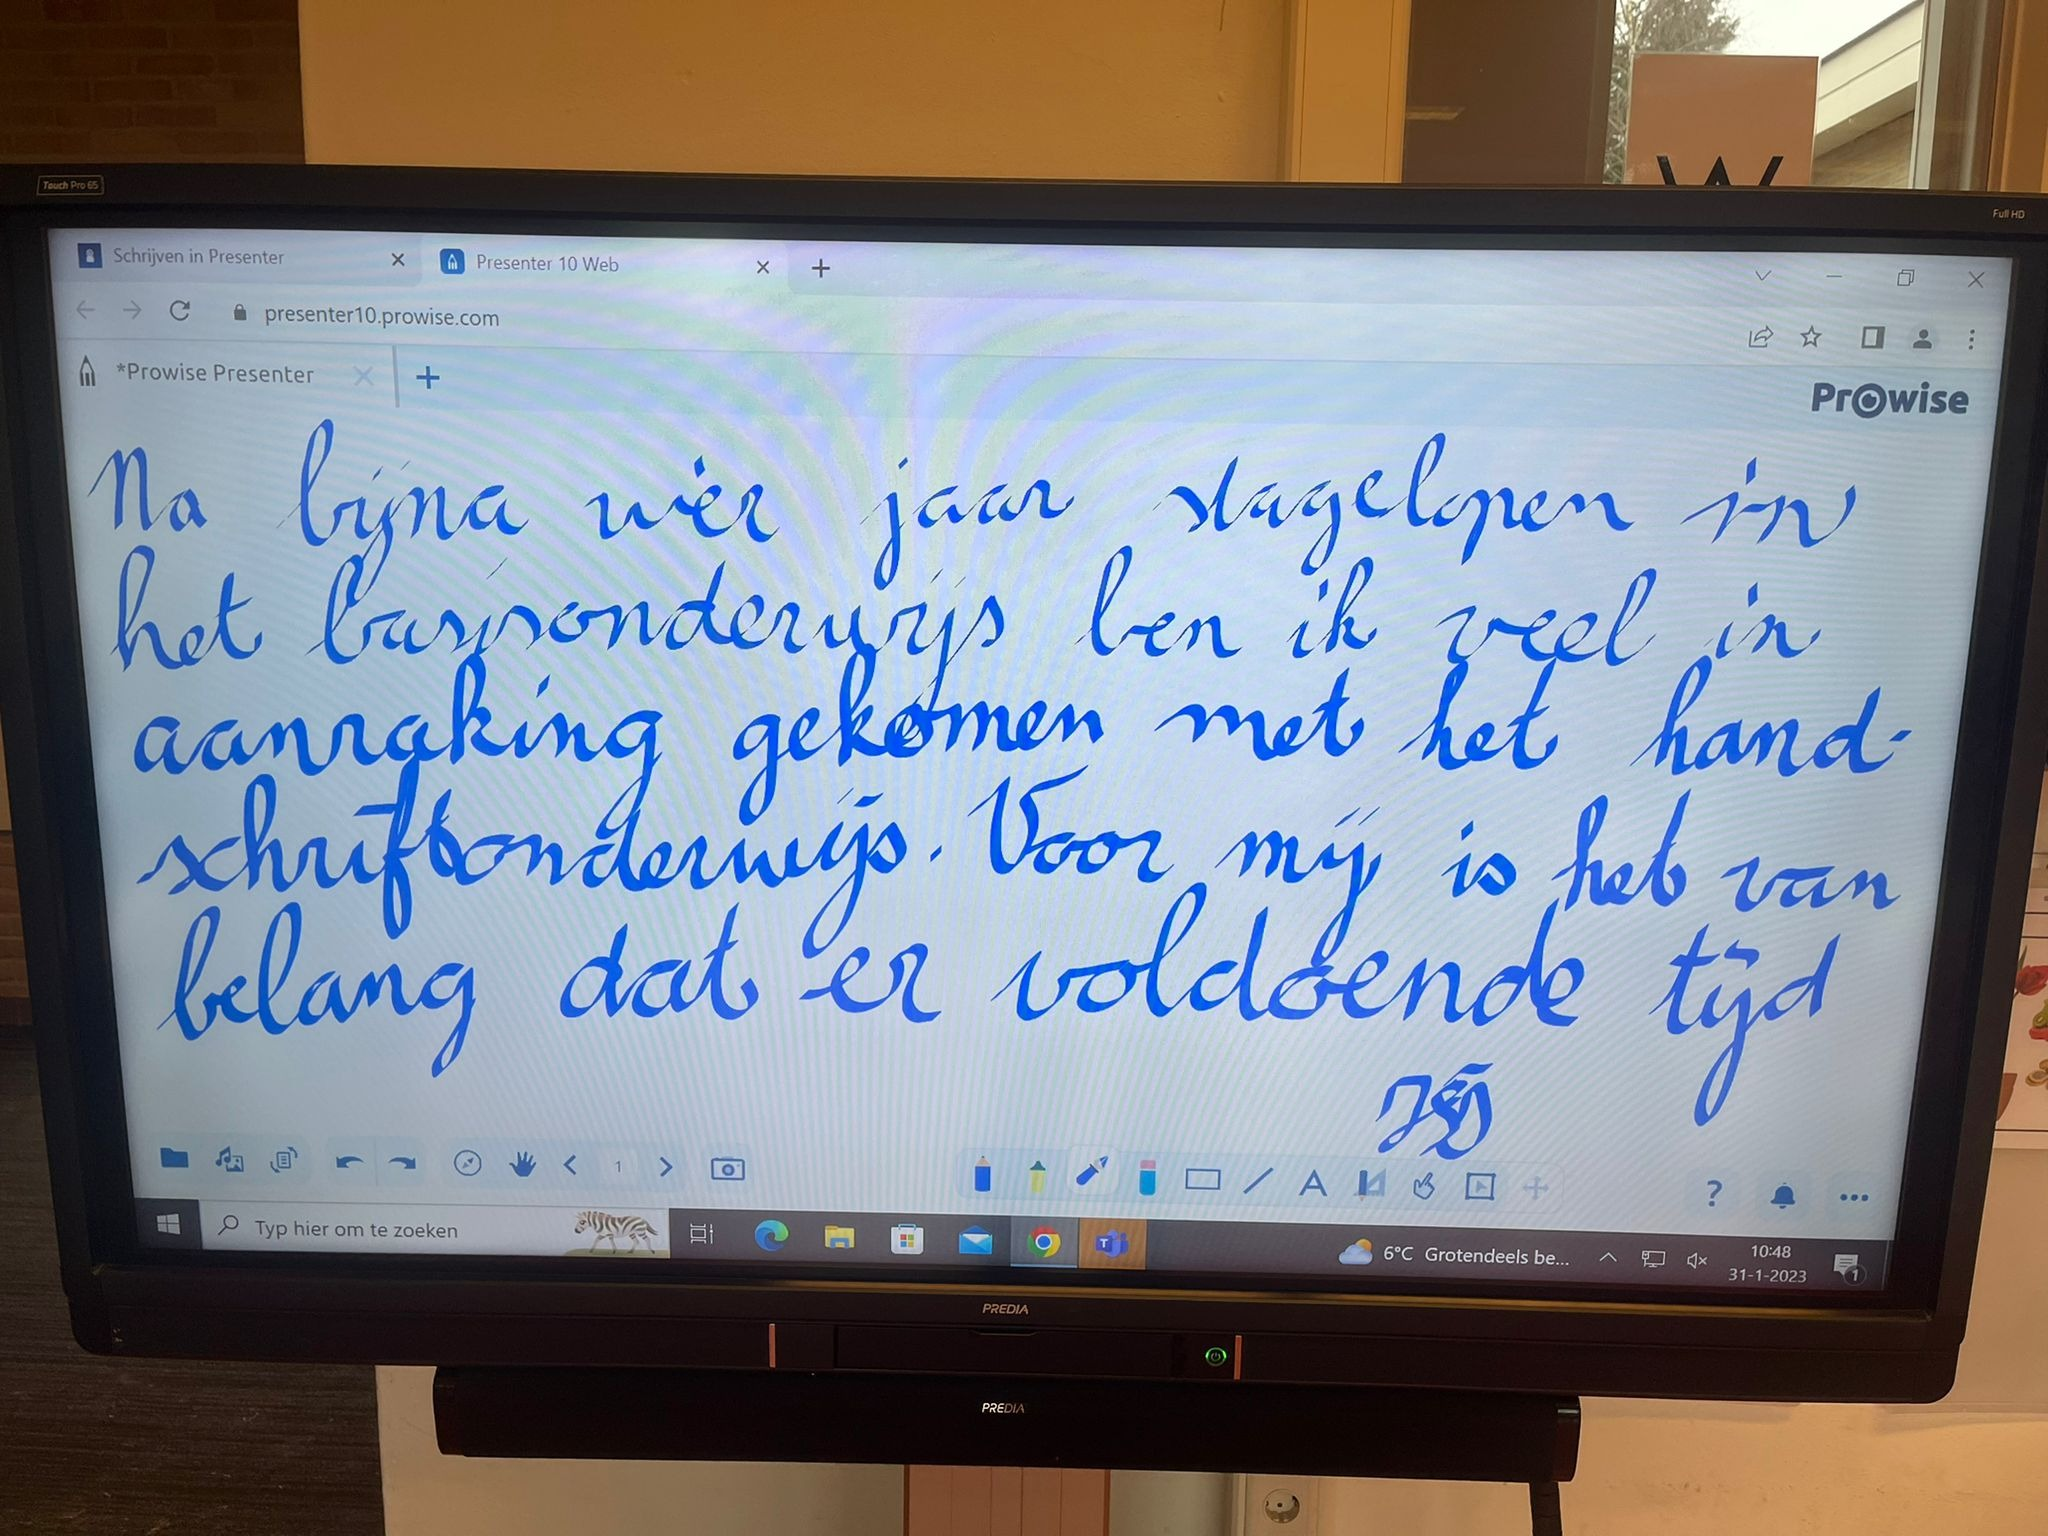 Touch Pro 65
W
Full HD
Schrijven in Presenter
Presenter 10 Web
presenter10.prowise.com
*Prowise Presenter
Prowise
Na bijna vier jaar stagelopen in
het basisonderwijs ben ik veel in
aanraking gekomen met het hand-
schriftonderwijs. Voor mij is het van
belang dat er voldoende tijd
1
A
?
Typ hier om te zoeken
6°C Grotendeels be...
10:48
31-1-2023
1
PREDIA
PREDIA